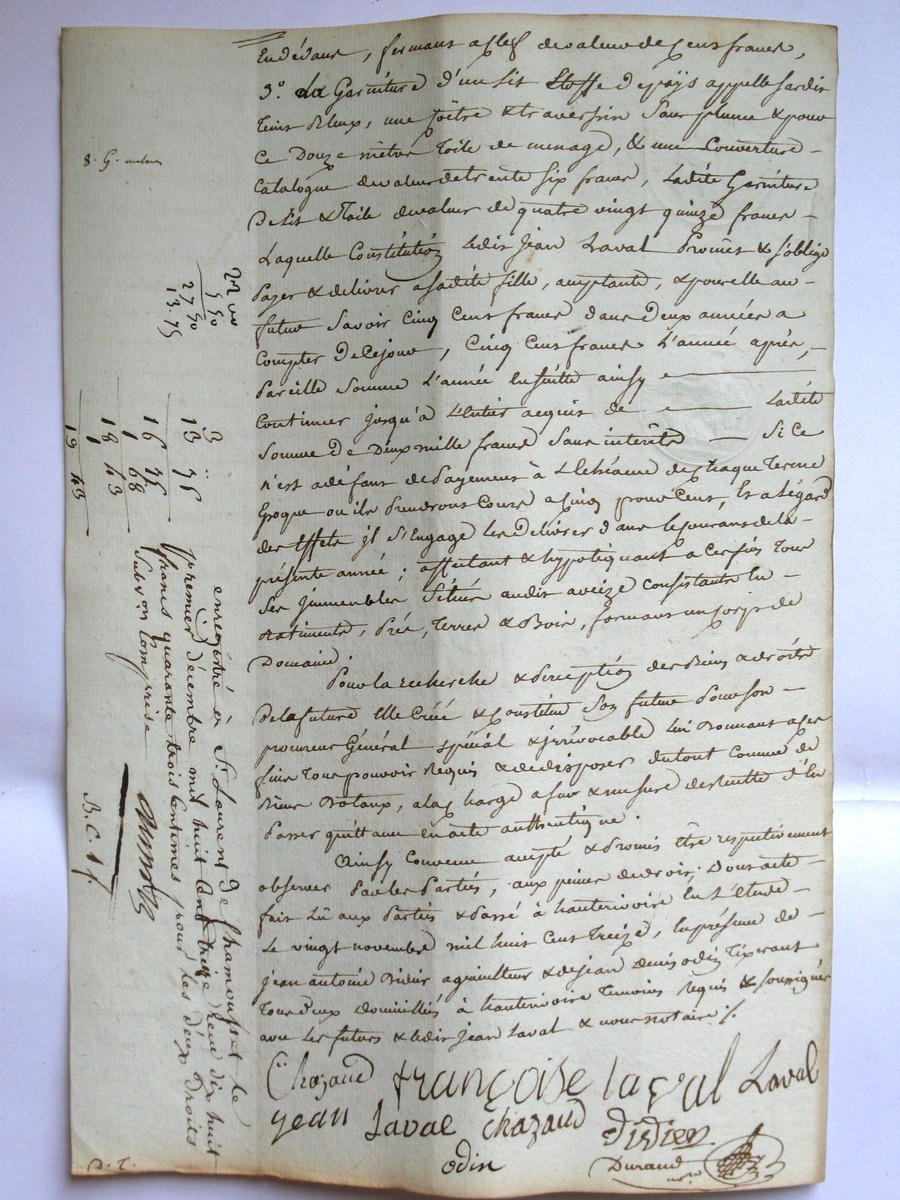 en dedans, fermant a clef de valeur de cent francs,
3º. La Garniture d'un lit Etoffe de païs appellé sardis
teint Bleux, une Coëtre & traversin sans plume & pour
Ce Douze mètres Toile de menage, & une Couverture
Catalogne de valeur de trente Six francs, Ladite Garniture
De lit & Toile de valeur de quatre vingt quinze francs
Laquelle Constitution ledit Jean Laval Promet & s'oblige
Payer & delivrer a sadite fille, acceptante, & pour elle au
futur Savoir Cinq Cent francs dans Deux années a
Compter De Ce jour, Cinq Cent francs L'année après,
Pareille Somme L'année Ensuitte ainsy
Continuer jusqu'à L'entier acquis de Ladite
Somme De Deux mille francs Sans intérêts Si Ce
n'est a défaut de Payement à L'Echéance de chaque Terme
Epoque ou ils Prendront Cours a Cinq pour Cent, Et a L'égard
des Effets il S'Engage les Delivrer Dans le Courant de la
présente année ; affectant & hypotéquant a Ces fins Tous
Ses Immeubles Situés audit aveize Consistants En
Batiments, Prés, Terres & Bois, formant un Corps de
Domaine.
Pour la Recherche & Perception des Biens & droits
De la future Elle Créé & Constitue Son futur Pour Son
procureur Général spécial & irrévocable Lui Donnant a ces
fins Tous pouvoir Requis & de disposer du tout Comme de
Biens Dotaux, a la Charge a fur & mesure des recette d'En
Passer quittance En acte authentique.
Ainsy Convenu accepté & Promis être respectivement
observer Par les Parties, aux peines de droit ; Dont acte
fait Lû aux Parties & Passé à hauterivoire En L'étude
Le vingt novembre mil huit Cent Treize, En présence de
Jean antoine Didier agriculteur & de Jean Denis odin Tixerant
Tous Deux domiciliés à hauterivoire Temoins Requis & Soussignés
avec les futurs & ledit Jean Laval & nous notaire
Chazaud françoise laval Laval
Jean Laval Chazaud Didier
odin Durand nore
22 00
5 50
27 50
13. 75
3
13 75
16 75
1 68
18 43
1
19 43
enregistré à St. Laurent De Chamousset le
premier décembre mil huit Cent treize Reçu dix huit
francs quarante trois Centimes pour les deux Droits
Subv.on Comprise
D. T.